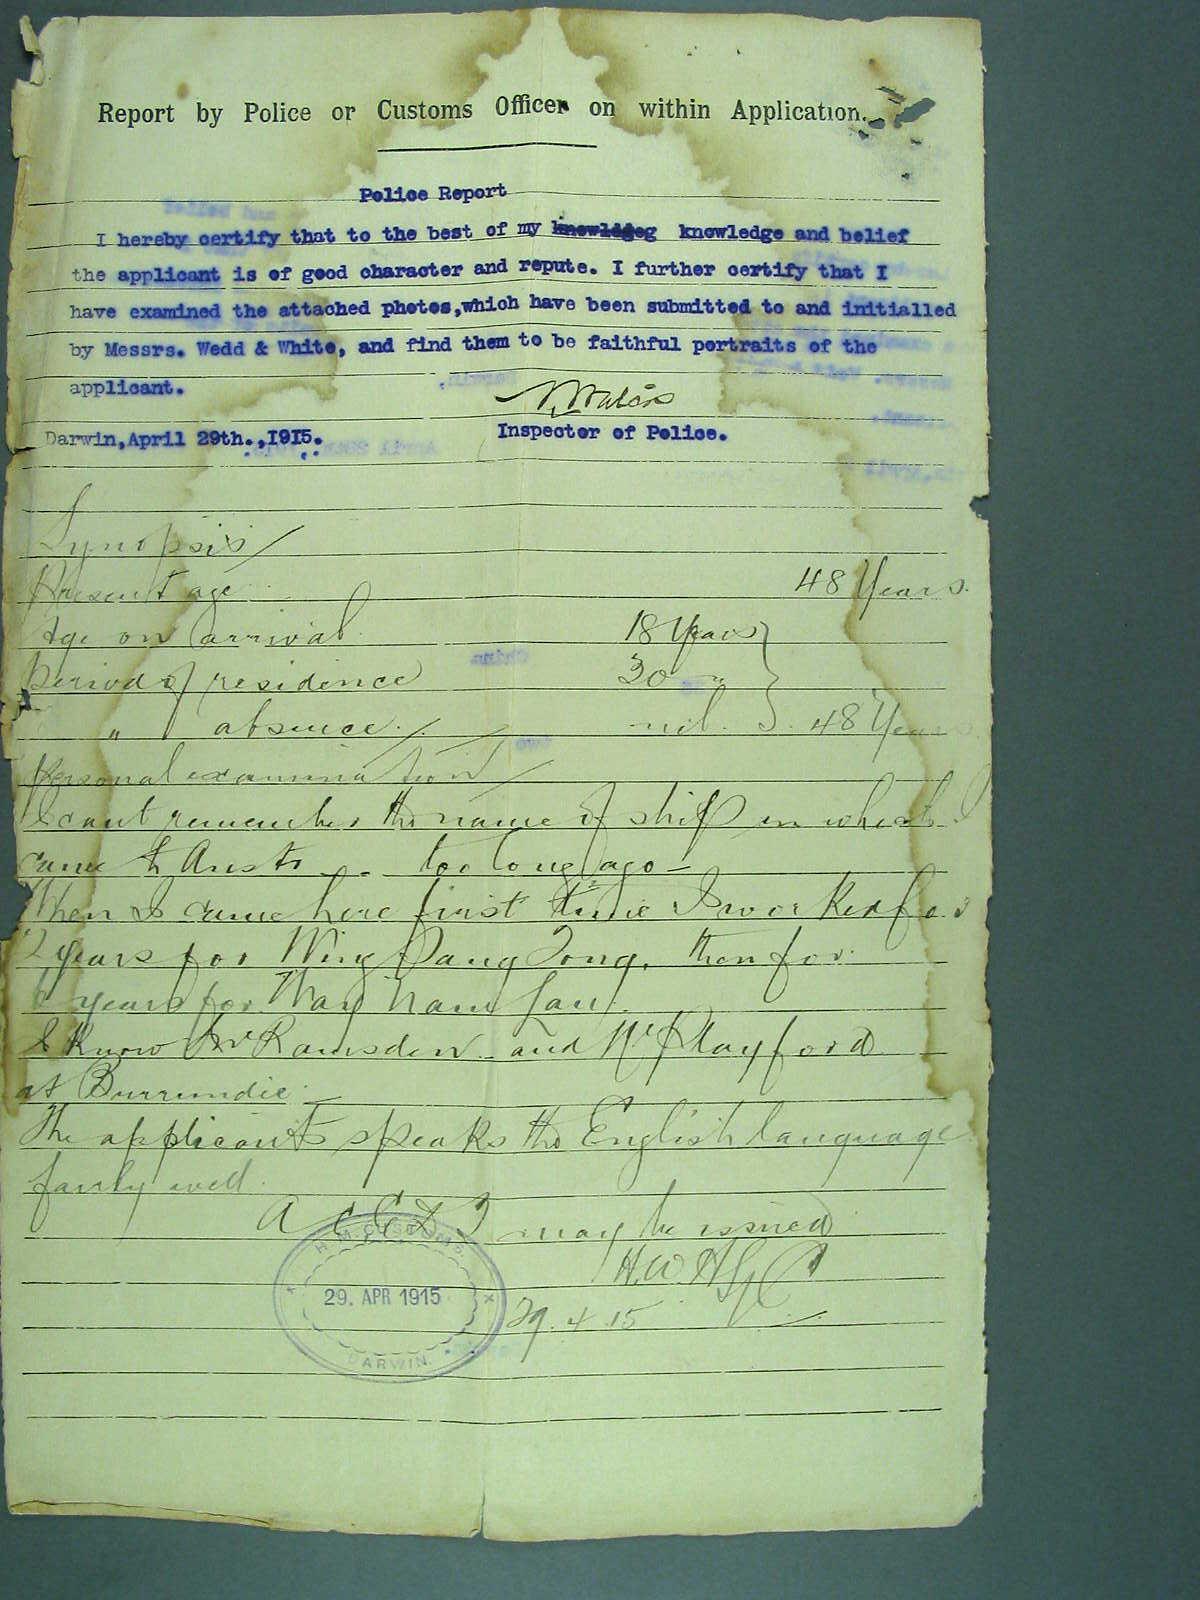 Report by Police or Customs Officer on within Application.
Police Report
I hereby certify that to the best of my knowldgeg knowledge and belief
the applicant is of good character and repute. I further certify that I
have examined the attached photos,which have been submitted to and initialled
by Messrs. Wedd & White, and find them to be faithful portraits of the
applicant.
Darwin,April 29th.,1915.
Inspector of Police.
Synopsis
Present age 48 Years.
Age on arrival 18 Years
Period of residence 30 "
" absence. nil. 48 Years
Personal examination
I cant remember the name of ship in which I
came to Austr - - too long ago -
When I came here first time I worked for
2 years for Wing Wang Tong, then for
years for
I know Mr Ramsden and Mr Playford
at Burrundie.
The applicant speaks the English language
fairly well.
A C E D T may be issued
29.4.15
H.M. CUSTOMS
29. APR 1915
DARWIN.